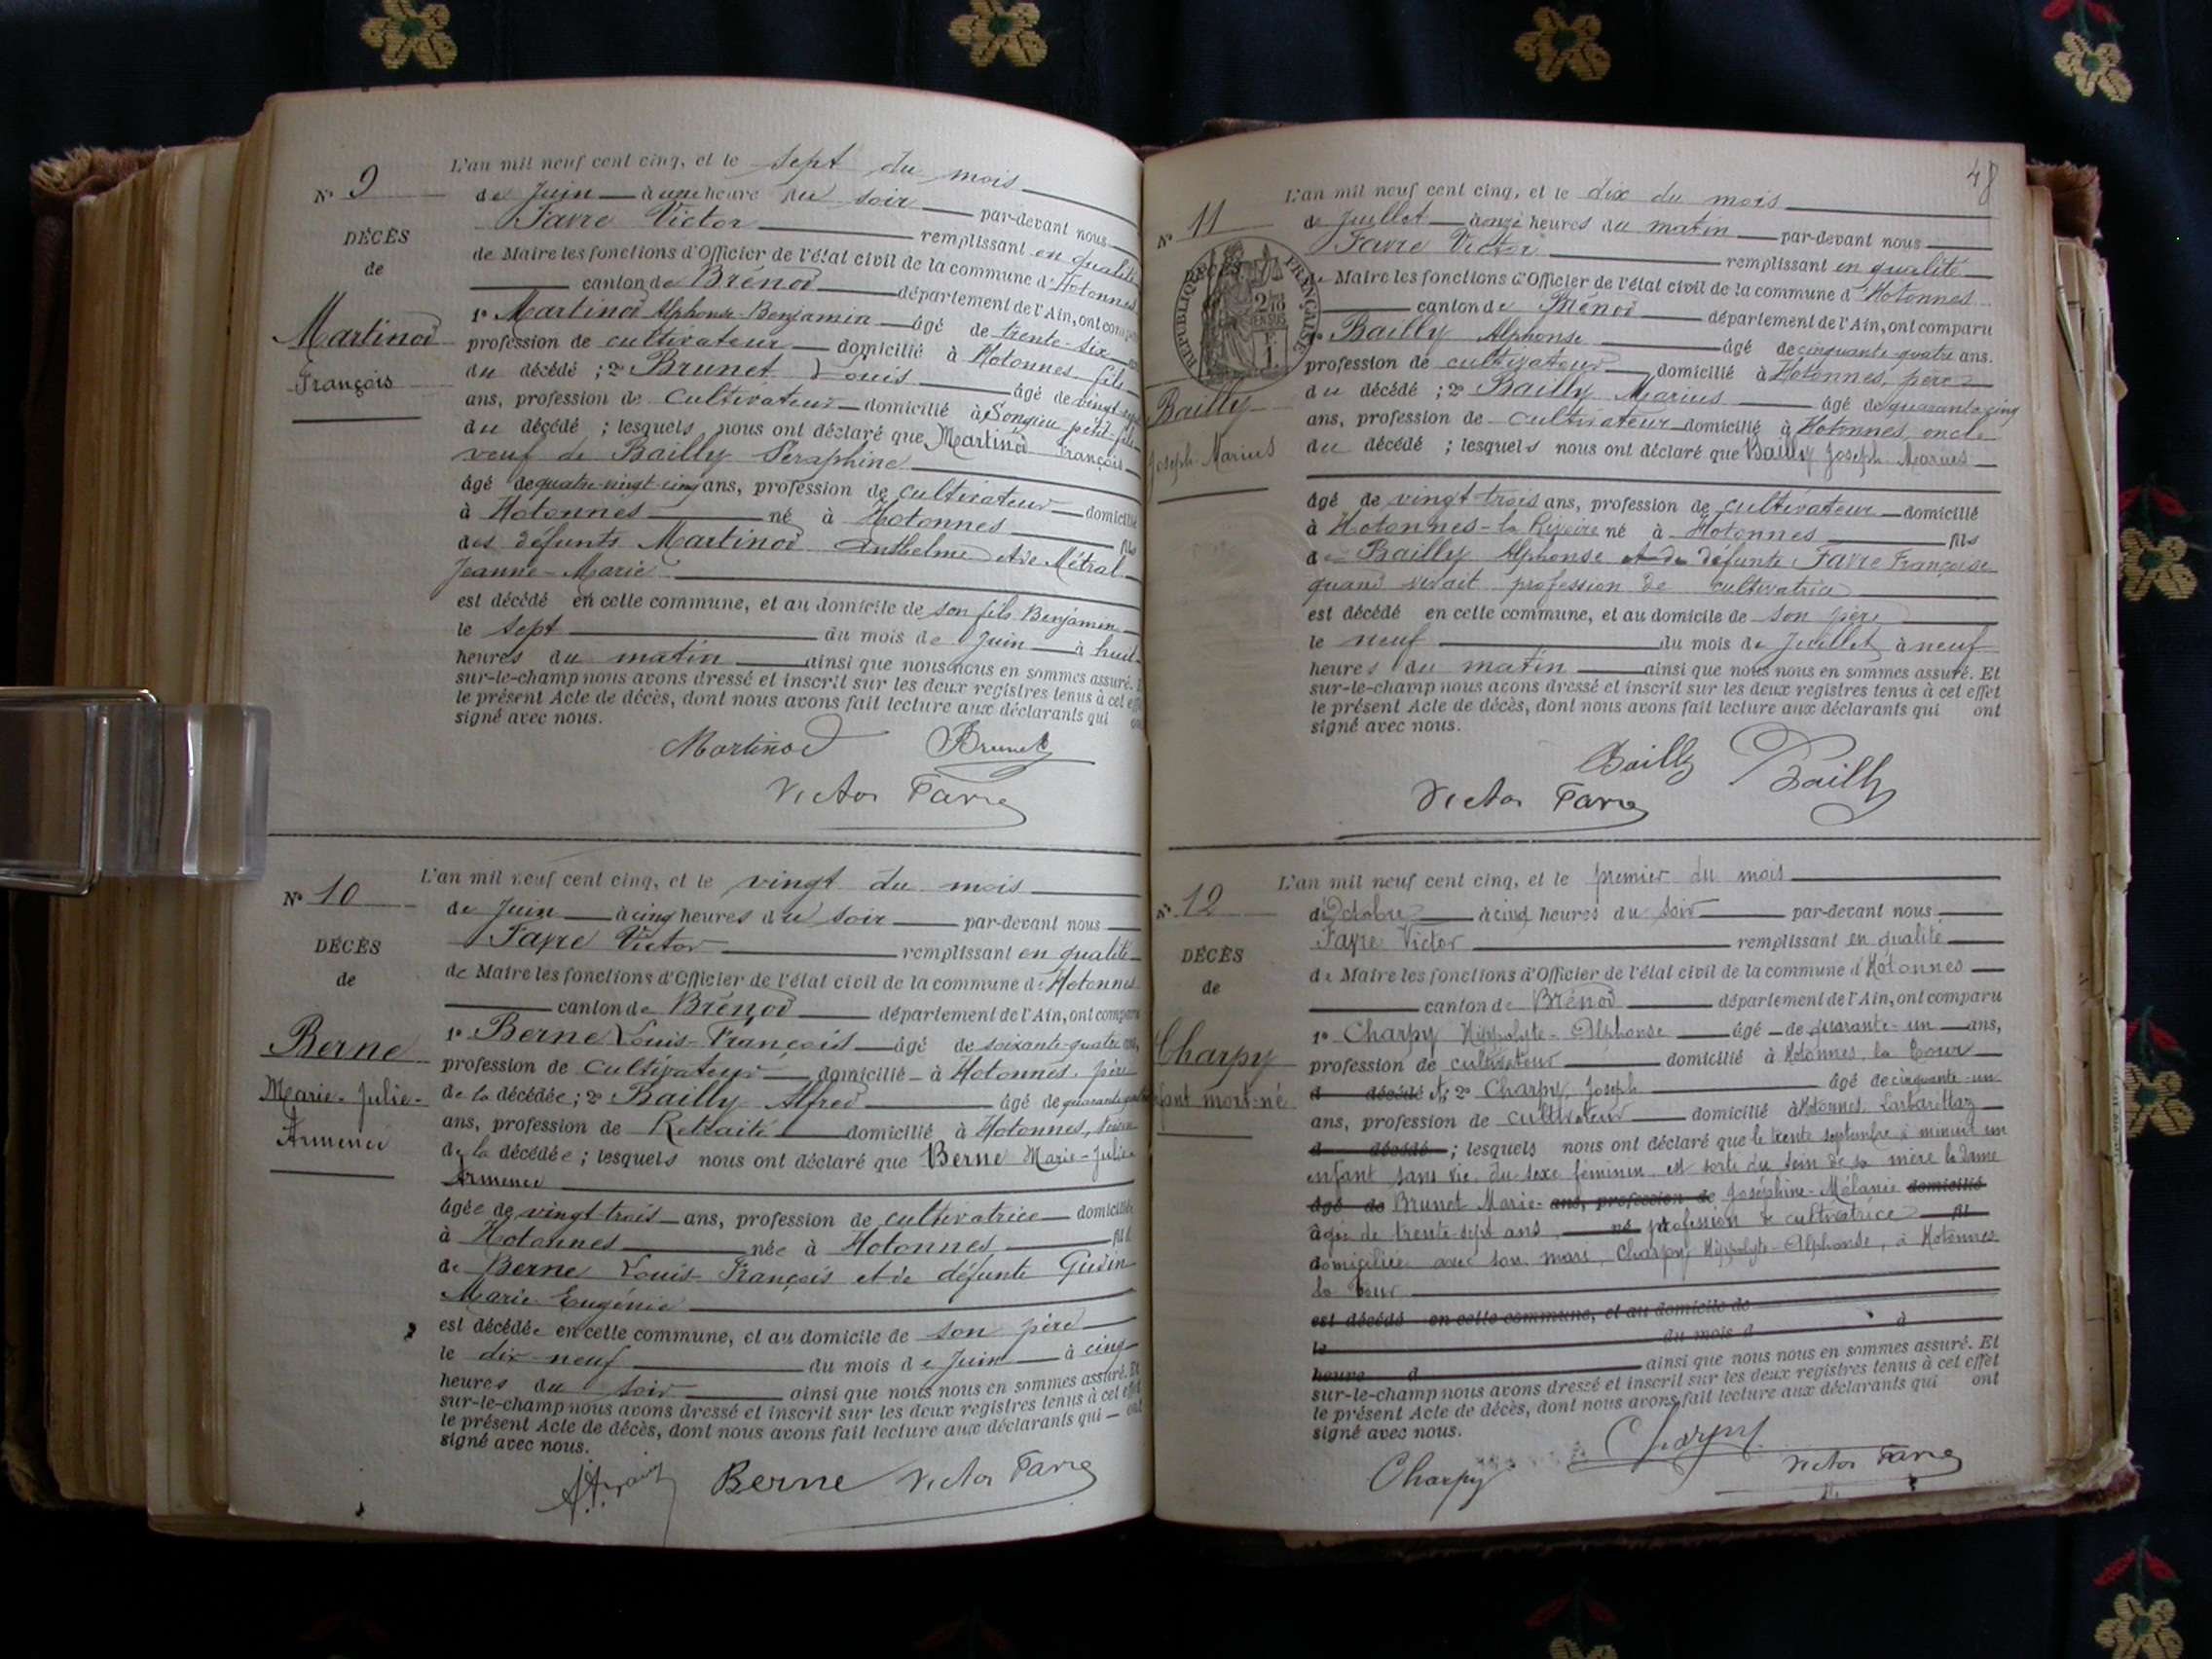 N° 9
DÉCÈS
de
Martinod
François
L'an mil neuf cent cinq, et le sept du mois
de Juin à une heure du soir par-devant nous
Favre Victor remplissant en qualité
de Maire les fonctions d'Officier de l'état civil de la commune d'Hotonnes
canton de Brénod département de l'Ain, ont comparu
1° Martinod Alphonse-Benjamin âgé de trente-six
profession de cultivateur domicilié à Hotonnes, fils
du décédé ; 2° Brunet Louis âgé de vingt
ans, profession de cultivateur domicilié à Songieu petit-fils
du décédé ; lesquels nous ont déclaré que Martinod François
veuf de Bailly Séraphine
âgé de quatre-vingt-cinq ans, profession de cultivateur domicilié
à Hotonnes né à Hotonnes fils
des défunts Martinod Anthelme et de Métral
Jeanne-Marie
est décédé en cette commune, et au domicile de son fils Benjamin
le sept du mois de Juin à huit
heures du matin ainsi que nous nous en sommes assuré. Et
sur-le-champ nous avons dressé et inscrit sur les deux registres tenus à cet effet
le présent Acte de décès, dont nous avons fait lecture aux déclarants qui ont
signé avec nous.
Martinod Brunet
Victor Favre
N° 10
DÉCÈS
de
Berne
Marie-Julie-
Armence
L'an mil neuf cent cinq, et le vingt du mois
de Juin à cinq heures du soir par-devant nous
Favre Victor remplissant en qualité
de Maire les fonctions d'Officier de l'état civil de la commune d'Hotonnes
canton de Brénod département de l'Ain, ont comparu
1° Berne Louis-François âgé de soixante-quatre ans,
profession de cultivateur domicilié à Hotonnes, père
de la décédée ; 2° Bailly Alfred âgé de quarante
ans, profession de Retraité domicilié à Hotonnes,
de la décédée ; lesquels nous ont déclaré que Berne Marie-Julie-
Armence
âgée de vingt-trois ans, profession de cultivatrice domiciliée
à Hotonnes née à Hotonnes fille
de Berne Louis-François et de défunte Gudin
Marie Eugénie
est décédée en cette commune, et au domicile de son père
le dix-neuf du mois de Juin à cinq
heures du soir ainsi que nous nous en sommes assuré. Et
sur-le-champ nous avons dressé et inscrit sur les deux registres tenus à cet effet
le présent Acte de décès, dont nous avons fait lecture aux déclarants qui ont
signé avec nous.
Berne Victor Favre
48
N° 11
DÉCÈS
RÉPUBLIQUE FRANÇAISE
2/10 EN SUS
Bailly
Joseph Marius
L'an mil neuf cent cinq, et le dix du mois
de Juillet à onze heures du matin par-devant nous
Favre Victor remplissant en qualité
de Maire les fonctions d'Officier de l'état civil de la commune d'Hotonnes
canton de Brénod département de l'Ain, ont comparu
1° Bailly Alphonse âgé de cinquante-quatre ans.
profession de cultivateur domicilié à Hotonnes, père
du décédé ; 2° Bailly Marius âgé de quarante cinq
ans, profession de cultivateur domicilié à Hotonnes, oncle
du décédé ; lesquels nous ont déclaré que Bailly Joseph Marius
âgé de vingt-trois ans, profession de cultivateur domicilié
à Hotonnes-la Rivoire né à Hotonnes fils
de Bailly Alphonse et de défunte Favre Françoise
quand vivait profession de cultivatrice
est décédé en cette commune, et au domicile de son père
le neuf du mois de Juillet à neuf
heures du matin ainsi que nous nous en sommes assuré. Et
sur-le-champ nous avons dressé et inscrit sur les deux registres tenus à cet effet
le présent Acte de décès, dont nous avons fait lecture aux déclarants qui ont
signé avec nous.
Bailly Bailly
Victor Favre
N° 12
DÉCÈS
de
Charpy
enfant mort-né
L'an mil neuf cent cinq, et le premier du mois
d'Octobre à cinq heures du soir par-devant nous
Favre Victor remplissant en qualité
de Maire les fonctions d'Officier de l'état civil de la commune d'Hotonnes
canton de Brénod département de l'Ain, ont comparu
1° Charpy Hippolyte-Alphonse âgé de quarante-un ans,
profession de cultivateur domicilié à Hotonnes, la Cour
d décédé et 2° Charpy Joseph âgé de cinquante-un
ans, profession de cultivateur domicilié à Hotonnes,
d décédé ; lesquels nous ont déclaré que le trente septembre à minuit un
enfant sans vie, du sexe féminin est sorti du sein de sa mère la dame
âgé de Brunet Marie- ans, profession de Joséphine-Mélanie domicilié
âgée de trente-sept ans, né profession de cultivatrice fil
domiciliée avec son mari, Charpy Hippolyte-Alphonse, à Hotonnes
la Cour
est décédé en cette commune, et au domicile de
le du mois d à
heure d ainsi que nous nous en sommes assuré. Et
sur-le-champ nous avons dressé et inscrit sur les deux registres tenus à cet effet
le présent Acte de décès, dont nous avons fait lecture aux déclarants qui ont
signé avec nous.
Charpy Charpy Victor Favre